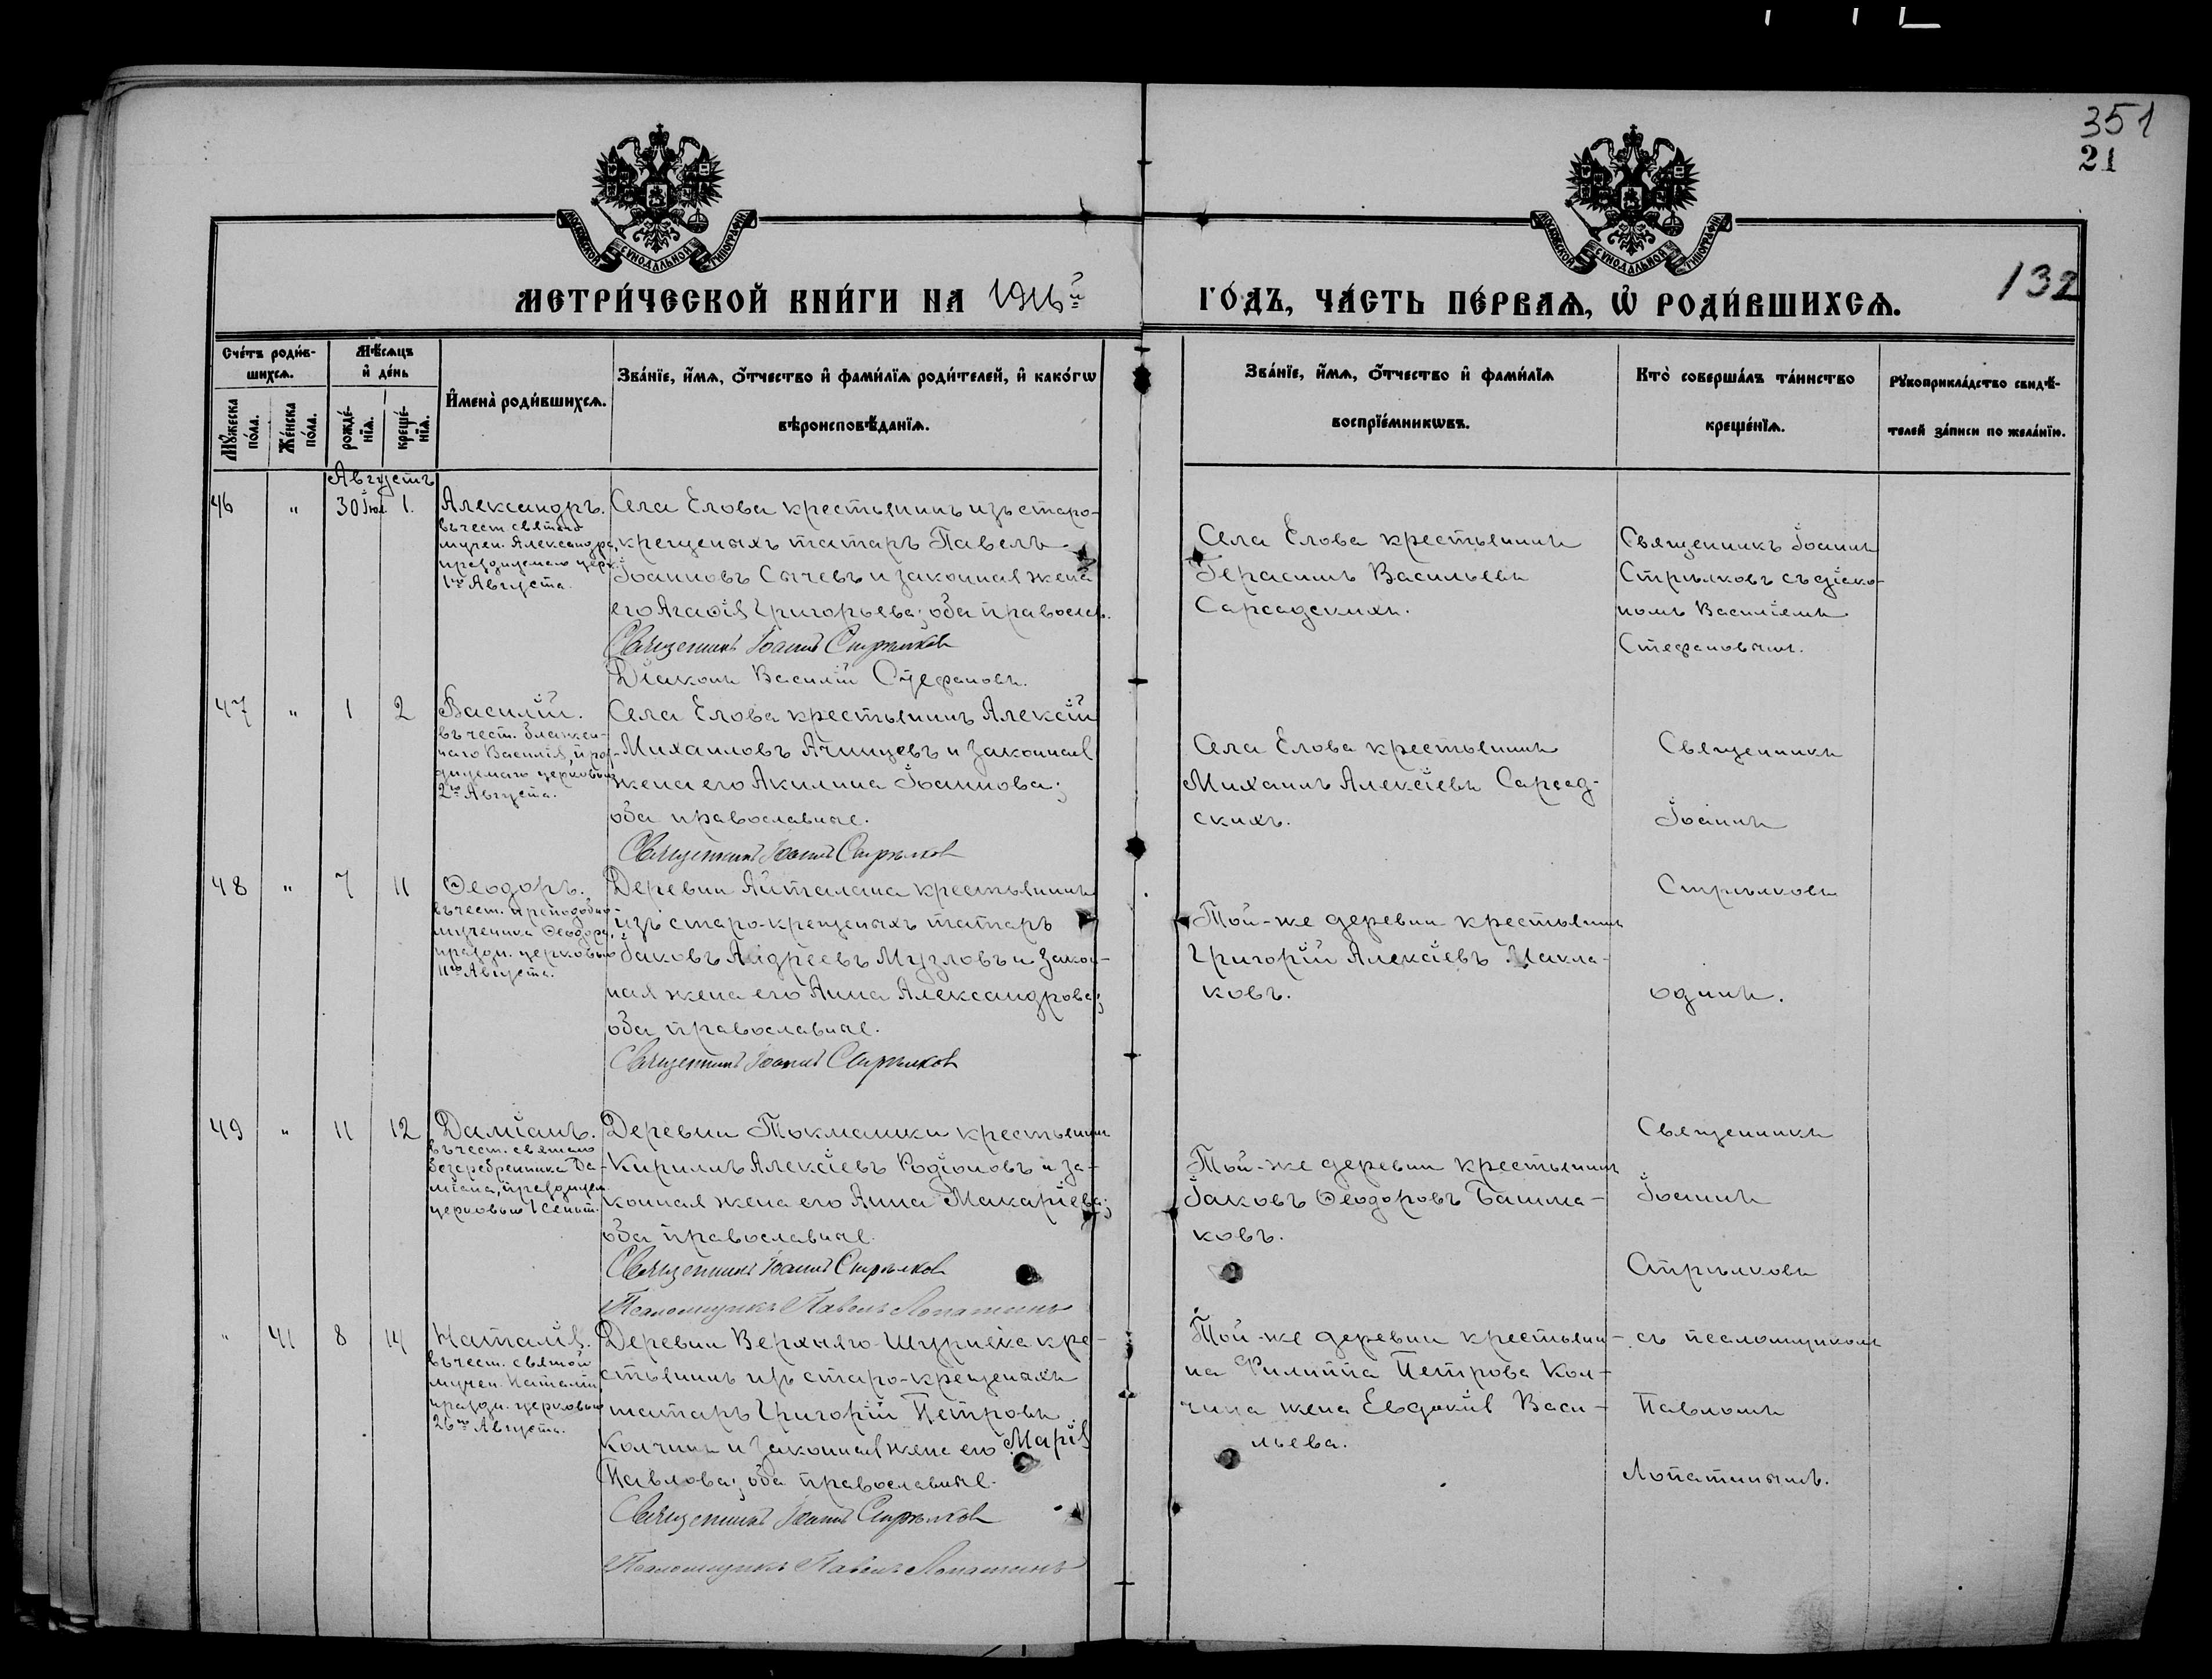 351
21
132
МОСКОВСКОЙ СУНОДАЛЬНОЙ ТИПОГРАФІИ
МОСКОВСКОЙ СУНОДАЛЬНОЙ ТИПОГРАФІИ
МЕТРИ́ЧЕСКОЙ КНИ́ГИ НА 1916 й
ГО́ДЪ, ЧА́СТЬ ПЕ́РВАѦ, Ѡ҆ РОДИ́ВШИХСѦ.
Сче́тъ роди́в-
шихсѧ.
Мꙋ́жеска по́ла.
Же́нска по́ла.
Мѣ́сѧцъ
и҆ де́нь
рожде́-
нїѧ.
креще́-
нїѧ.
И҆мена̀ роди́вшихсѧ.
Зва́нїе, и҆́мѧ, ѻ҆́тчество и҆ фами́лїѧ роди́телей, и҆ како́гѡ
вѣроисповѣ́данїѧ.
Зва́нїе, и҆́мѧ, ѻ҆́тчество и҆ фами́лїѧ
воспрїе́мникѡвъ.
Кто̀ соверша́лъ та́инство
креще́нїѧ.
Рꙋкоприкла́дство свидѣ́-
телей за́писи по жела́нїю.
Августъ
46 " 30 Іюл. 1.
Александръ.
въ чест. святаго
мучен. Александра,
празднуемаго церк.
1го Августа.
Села Елова крестьянинъ изъ старо-
крещеныхъ татаръ Павелъ
Іоанновъ Сычевъ и законная жена
его Агафія Григорьева; оба православ.
Священникъ Іоаннъ Стрѣлковъ
Діаконъ Василій Стефановъ.
Села Елова крестьянинъ
Герасимъ Васильевъ
Сарсадскихъ.
Священникъ Іоаннъ
Стрѣлковъ съ діако-
номъ Василіемъ
Стефановымъ.
47 " 1 2
Василій.
въ чест. блажен-
наго Василія, праз-
днуемаго церковью
2го Августа.
Села Елова крестьянинъ Алексій
Михаиловъ Ачинцевъ и законная
жена его Акилина Іоаннова;
оба православные.
Священникъ Іоаннъ Стрѣлковъ
Села Елова крестьянинъ
Михаилъ Алексіевъ Сарсад-
скихъ.
Священникъ
Іоаннъ
Стрѣлковъ
одинъ.
48 " 7 11
Ѳеодоръ.
въ чест. преподобно-
мученика Ѳеодора,
праздн. церковью
11го Августа.
Деревни Айталана крестьянинъ
изъ старо-крещеныхъ татаръ
Іаковъ Андреевъ Музловъ и закон-
ная жена его Анна Александрова;
оба православные.
Священникъ Іоаннъ Стрѣлковъ
Той-же деревни крестьянинъ
Григорій Алексіевъ Макла-
ковъ.
49 " 11 12
Даміанъ.
въ чест. святаго
безсребренника Да-
міана, празднуем.
церковью 1 Сент.
Деревни Токмашки крестьянинъ
Кириллъ Алексіевъ Родіоновъ и за-
конная жена его Анна Макаріева;
оба православные.
Священникъ Іоаннъ Стрѣлковъ
Псаломщикъ Павелъ Лопатинъ
Той-же деревни крестьянинъ
Іаковъ Ѳеодоровъ Башма-
ковъ.
Священникъ
Іоаннъ
Стрѣлковъ
съ псаломщикомъ
Павломъ
Лопатинымъ.
" 41 8 14
Наталія.
въ чест. святой
мучен. Наталіи,
праздн. церковью
26го Августа.
Деревни Верхняго-Шурняка кре-
стьянинъ изъ старо-крещеныхъ
татаръ Григорій Петровъ
Колчинъ и законная жена его Марія
Павлова; оба православные.
Священникъ Іоаннъ Стрѣлковъ
Псаломщикъ Павелъ Лопатинъ
Той-же деревни крестьяни-
на Филиппа Петрова Кол-
чина жена Евдокія Васи-
льева.